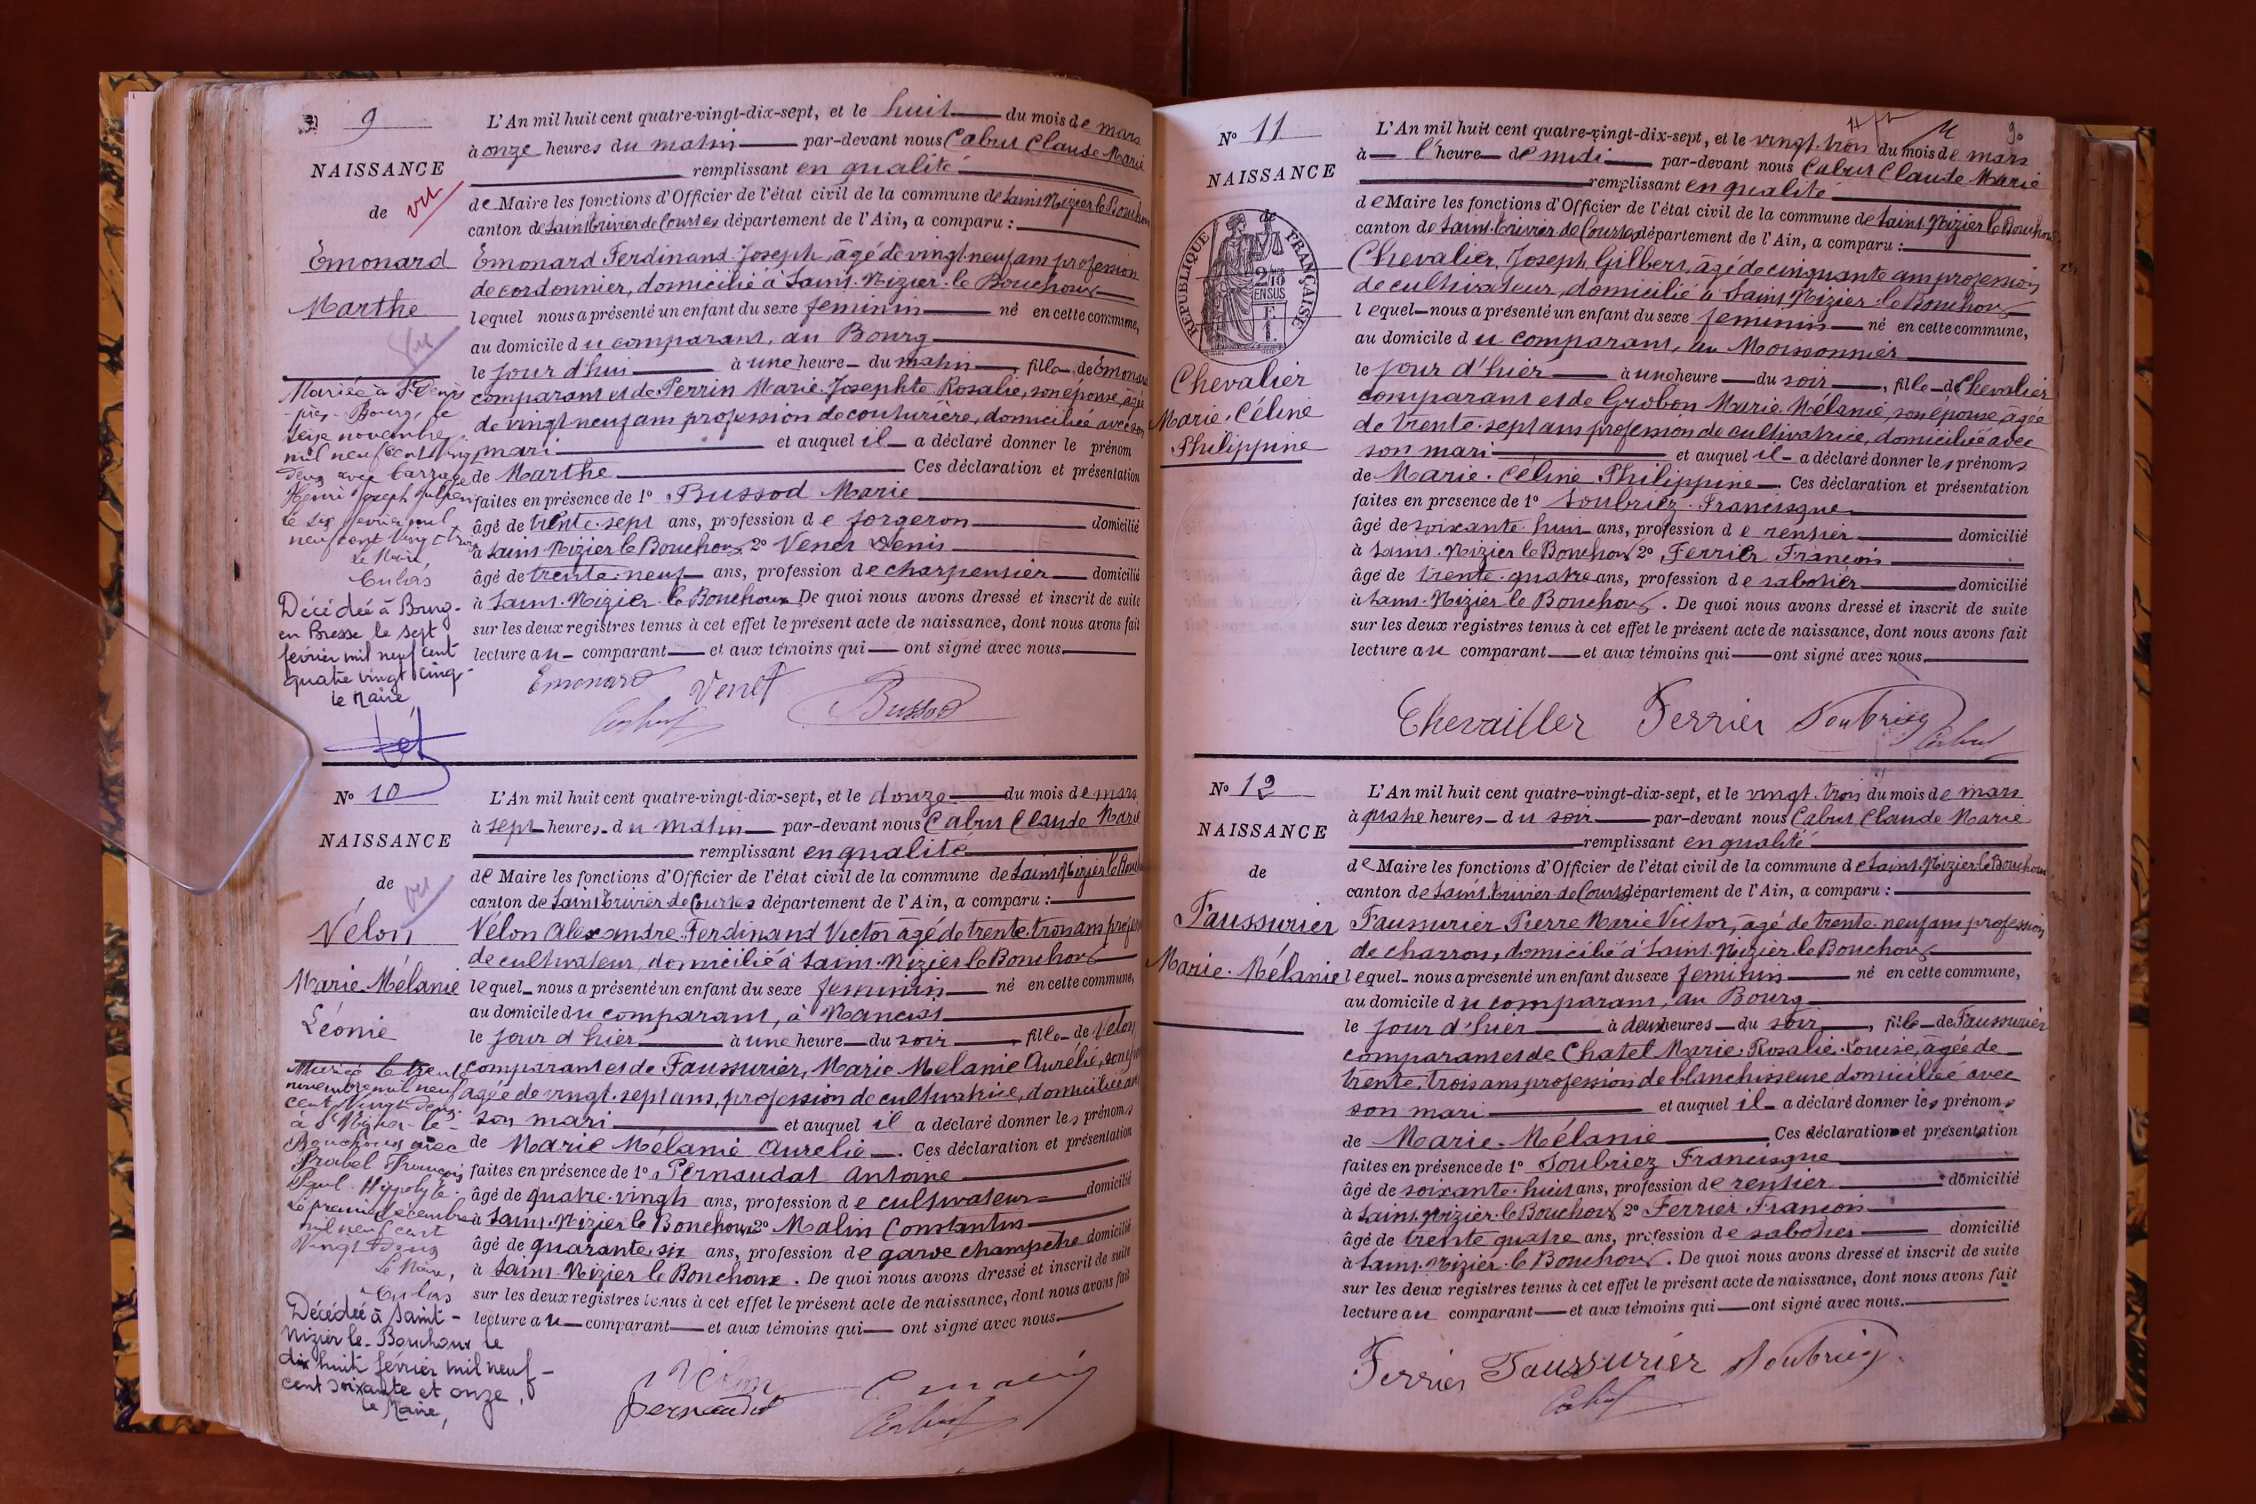 9
NAISSANCE
de
vu
Emonard
Marthe
L'An mil huit cent quatre-vingt-dix-sept, et le huit du mois de mars
à onze heures du matin par-devant nous Cabut Claude Marie
remplissant en qualité
de Maire les fonctions d'Officier de l'état civil de la commune de Saint Nizier le Bouchoux
canton de Saint Trivier de Courtes département de l'Ain, a comparu :
Emonard Ferdinand Joseph, âgé de vingt neuf ans profession
de cordonnier, domicilié à Saint-Nizier-le Bouchoux
lequel nous a présenté un enfant du sexe feminin né en cette commune,
au domicile du comparant, au Bourg
le jour d'hui à une heure du matin, fille de Emonard
comparant et de Perrin Marie Josephte Rosalie, son épouse, âgée
de vingt neuf ans profession de couturière, domiciliée avec son
mari et auquel il a déclaré donner le prénom
de Marthe Ces déclaration et présentation
faites en présence de 1º Bussod Marie
âgé de trente-sept ans, profession de forgeron domicilié
à Saint-Nizier le Bouchoux 2º Venet Denis
âgé de trente-neuf ans, profession de charpentier domicilié
à Saint-Nizier-le Bouchoux De quoi nous avons dressé et inscrit de suite
sur les deux registres tenus à cet effet le présent acte de naissance, dont nous avons fait
lecture au comparant et aux témoins qui ont signé avec nous.
Emonard Venet Bussod
Cabut
Mariée à St Denis
-près-Bourg le
seize novembre
mil neuf cent vingt
deux avec
Henri Joseph
le six février mil
neuf cent vingt trois
Le Maire
Décédée à Bourg-
en Bresse le sept
février mil neuf cent
quatre vingt cinq-
le Maire,
Nº 10
NAISSANCE
de
vu
Vélon
Marie Mélanie
Léonie
L'An mil huit cent quatre-vingt-dix-sept, et le douze du mois de mars
à sept heures du matin par-devant nous Cabut Claude Marie
remplissant en qualité
de Maire les fonctions d'Officier de l'état civil de la commune de Saint Nizier le Bouchoux
canton de Saint Trivier de Courtes département de l'Ain, a comparu :
Vélon Alexandre Ferdinand Victor âgé de trente-trois ans profession
de cultivateur, domicilié à Saint-Nizier le Bouchoux
lequel nous a présenté un enfant du sexe feminin né en cette commune,
au domicile du comparant, à
le jour d'hier à une heure du soir, fille de Vélon
comparant et de Faussurier, Marie Mélanie Aurélie, son épouse
âgée de vingt-sept ans, profession de cultivatrice, domiciliée avec
son mari et auquel il a déclaré donner les prénoms
de Marie Mélanie Aurelie. Ces déclaration et présentation
faites en présence de 1º Pernaudat Antoine
âgé de quatre-vingts ans, profession de cultivateur domicilié
à Saint-Nizier le Bouchoux 2º Malin Constantin
âgé de quarante-six ans, profession de garde champetre domicilié
à Saint-Nizier le Bouchoux. De quoi nous avons dressé et inscrit de suite
sur les deux registres tenus à cet effet le présent acte de naissance, dont nous avons fait
lecture au comparant et aux témoins qui ont signé avec nous.
Vélon C malin
pernaudat Cabut
Mariée le trente
novembre mil neuf
cent vingt deux
à St Nizier-le-
Bouchoux avec
François
Paul Hippolyte.
Le premier décembre
mil neuf cent
vingt deux
Le Maire,
Décédée à Saint-
Nizier le-Bouchoux le
dix huit février mil neuf-
cent soixante et onze,
le Maire,
90
Nº 11
NAISSANCE
de
RÉPUBLIQUE FRANÇAISE
Chevalier
Marie-Céline
Philippine
L'An mil huit cent quatre-vingt-dix-sept, et le vingt-trois du mois de mars
à l'heure de midi par-devant nous Cabut Claude Marie
remplissant en qualité
de Maire les fonctions d'Officier de l'état civil de la commune de Saint-Nizier le Bouchoux
canton de Saint-Trivier de Courtes département de l'Ain, a comparu :
Chevalier, Joseph Gilbert, âgé de cinquante ans profession
de cultivateur, domicilié à Saint Nizier-le Bouchoux
lequel nous a présenté un enfant du sexe feminin né en cette commune,
au domicile du comparant, au Moissonnier
le jour d'hier à une heure du soir, fille de Chevalier
comparant et de Grobon Marie Mélanie, son épouse, âgée
de trente-sept ans profession de cultivatrice, domiciliée avec
son mari et auquel il a déclaré donner les prénoms
de Marie-Céline Philippine. Ces déclaration et présentation
faites en présence de 1º Soubriez Francisque
âgé de soixante-huit ans, profession de rentier domicilié
à Saint-Nizier le Bouchoux 2º Ferrier François
âgé de trente-quatre ans, profession de sabotier domicilié
à Saint-Nizier le Bouchoux. De quoi nous avons dressé et inscrit de suite
sur les deux registres tenus à cet effet le présent acte de naissance, dont nous avons fait
lecture au comparant et aux témoins qui ont signé avec nous.
Chevailler Ferrier Soubriez
Cabut
Nº 12
NAISSANCE
de
Faussurier
Marie-Mélanie
L'An mil huit cent quatre-vingt-dix-sept, et le vingt-trois du mois de mars
à quatre heures du soir par-devant nous Cabut Claude Marie
remplissant en qualité
de Maire les fonctions d'Officier de l'état civil de la commune de Saint-Nizier-le Bouchoux
canton de Saint Trivier de Courtes département de l'Ain, a comparu :
Faussurier Pierre Marie Victor, âgé de trente neuf ans profession
de charron, domicilié à Saint-Nizier le Bouchoux
lequel nous a présenté un enfant du sexe feminin né en cette commune,
au domicile du comparant, au Bourg
le jour d'hier à deux heures du soir, fille de Faussurier
comparant et de Chatel Marie-Rosalie-Louise, âgée de
trente-trois ans profession de blanchisseuse domiciliée avec
son mari et auquel il a déclaré donner les prénoms
de Marie-Mélanie Ces déclaration et présentation
faites en présence de 1º Soubriez Francisque
âgé de soixante-huit ans, profession de rentier domicilié
à Saint-Nizier-le Bouchoux 2º Ferrier François
âgé de trente quatre ans, profession de sabotier domicilié
à Saint-Nizier-le Bouchoux. De quoi nous avons dressé et inscrit de suite
sur les deux registres tenus à cet effet le présent acte de naissance, dont nous avons fait
lecture au comparant et aux témoins qui ont signé avec nous.
Ferrier Faussurier Soubriez
Cabut